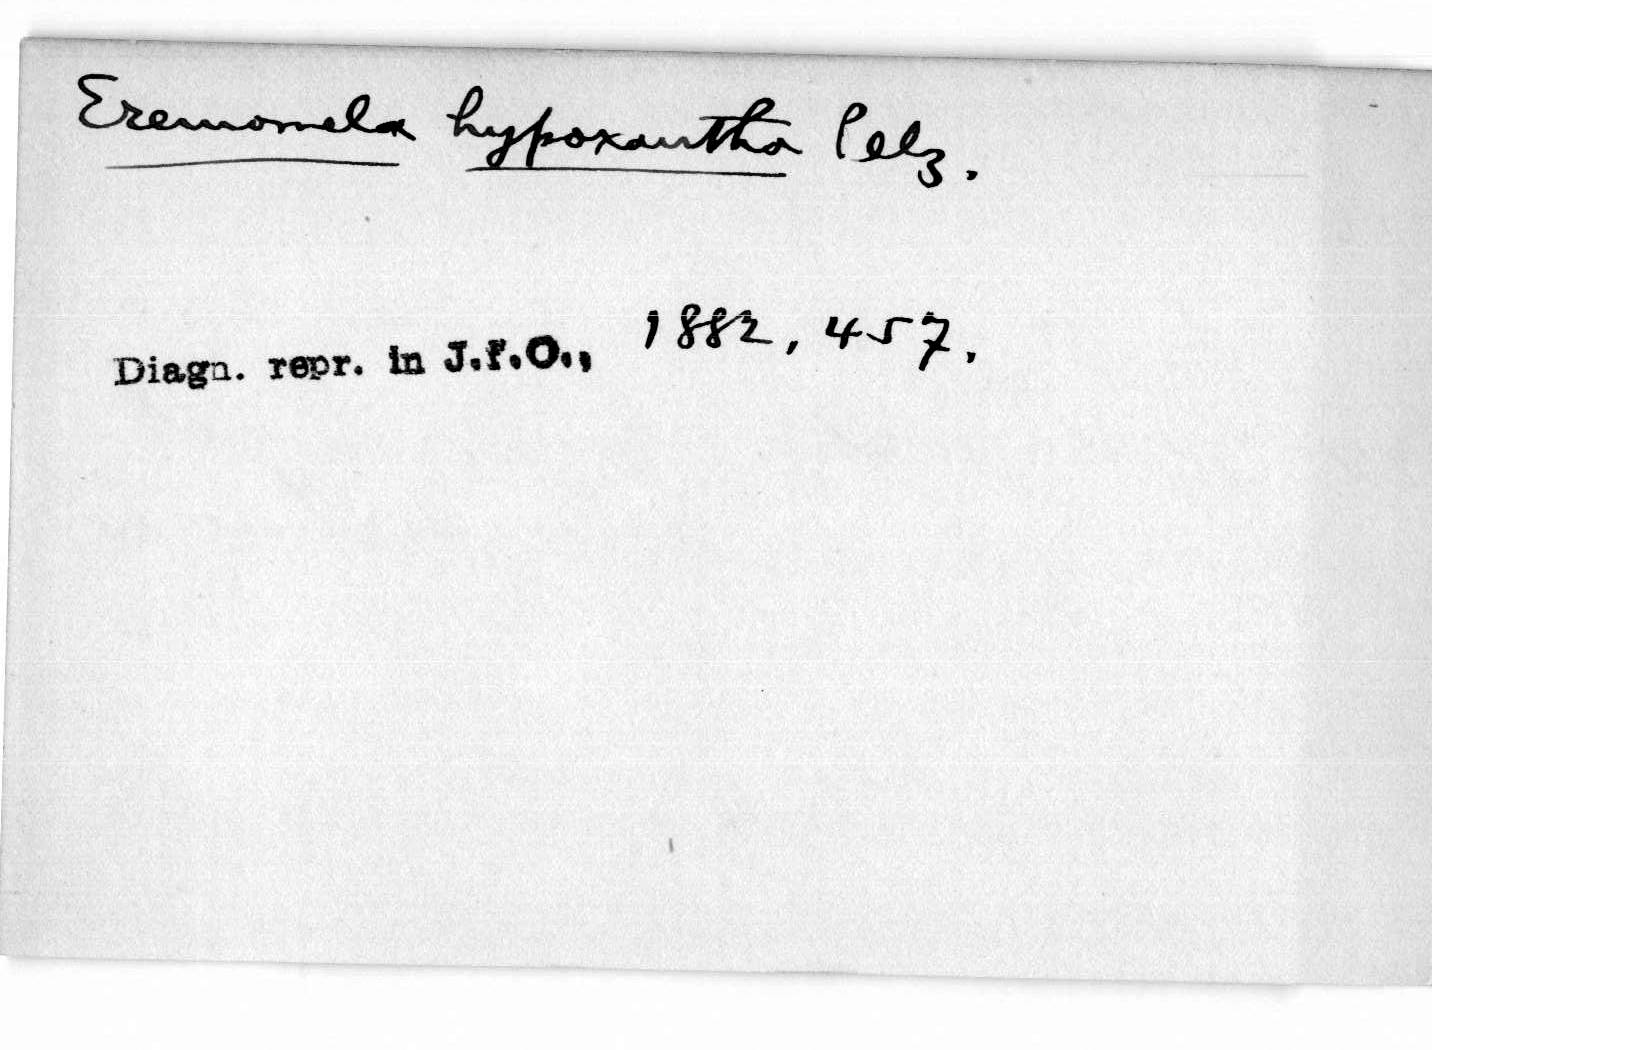 Eremomela hypoxantha Pelz.
Diagn. repr. in J.F.O., 1882, 457.